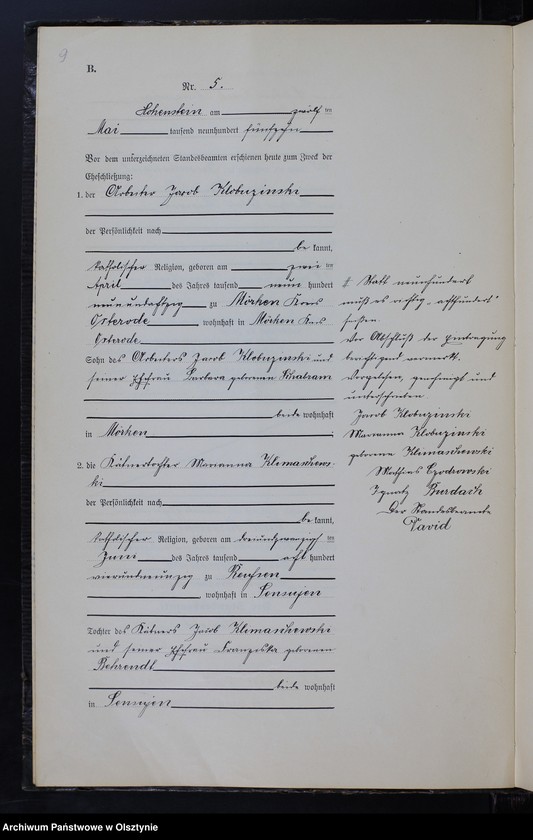 9
B.
Nr. 5.
Hohenstein am zwölf ten
Mai tausend neunhundert fünfzehn
Vor dem unterzeichneten Standesbeamten erschienen heute zum Zweck der
Eheschließung:
1. der Arbeiter Jacob Klobuzinski
der Persönlichkeit nach
be kannt,
katholischer Religion, geboren am zwei ten
April des Jahres tausend neun hundert
neunundachtzig zu Mörken Kreis
Osterode wohnhaft in Mörken Kreis
Osterode
Sohn des Arbeiters Jacob Klobuzinski und
seiner Ehefrau Barbara geborenen
beide wohnhaft
in Mörken
2. die Kätnertochter Marianna Klimaschews-
ki
der Persönlichkeit nach
be kannt,
katholischer Religion, geboren am dreiundzwanzigs ten
Juni des Jahres tausend acht hundert
vierundneunzig zu
wohnhaft in
Tochter des Kätners Jacob Klimaschewski
und seiner Ehefrau Franziska geborenen
Behrendt
beide wohnhaft
in
Statt neunhundert
muß es richtig „achthundert“
heißen.
Vor Abschluß der Eintragung
berichtigend vermerkt.
Vorgelesen, genehmigt und
unterschrieben
Jacob Klobuzinski
Marianna Klobuzinski
geborene Klimaschewski
Mathias
Ignatz Burdach
Der Standesbeamte
David
Archiwum Państwowe w Olsztynie